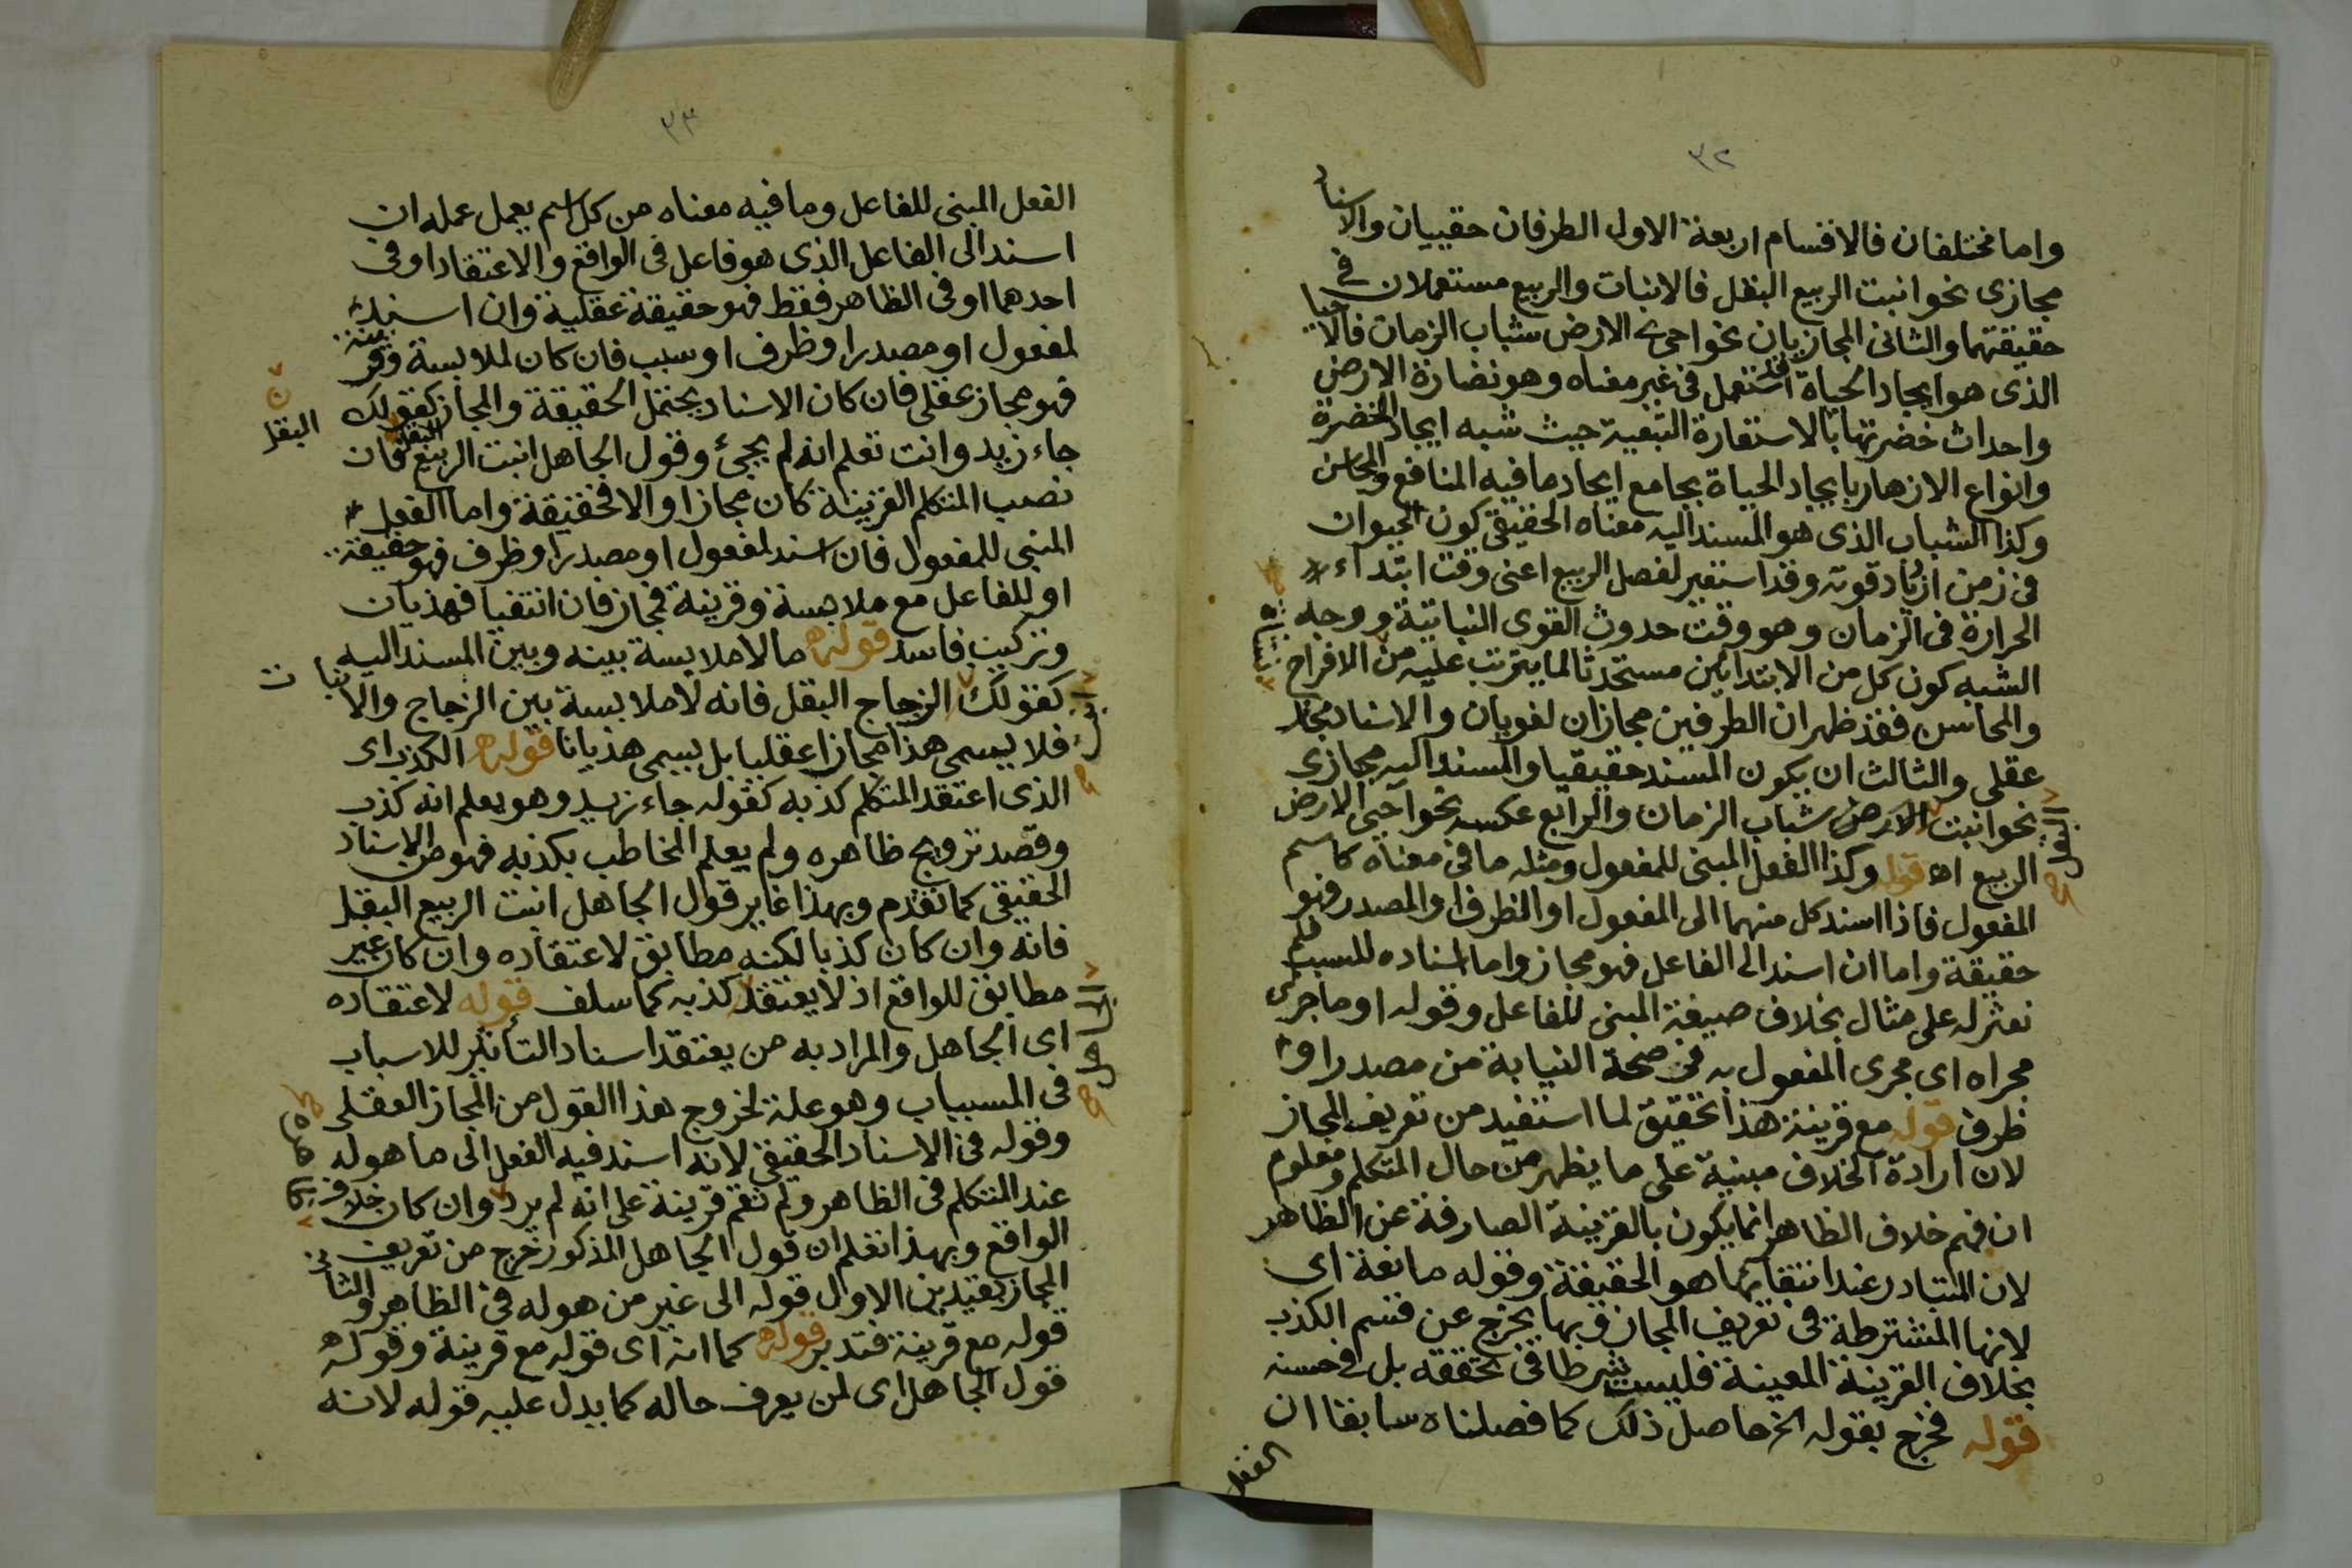 ٣٢
واما مختلفان فالاقسام اربعة الاول الطرفان حقييان والاسناد
مجازى نحو انبت الربيع البقل فالانبات والربيع مستعملان فى
حقيقتهما والثانى المجازيان نحو احيى الارض شباب الزمان فالاحيا
الذى هو ايجاد الحياة قد استعمل فى غير معناه وهو نضارة الارض
واحداث خضرتها بالاستعارة التبعية حيث شبه ايجاد الخضرة
وانواع الازهار بايجاد الحياة بجامع ايجاد ما فيه المنافع والمحاسن
وكذا الشباب الذى هو المسند اليه معناه الحقيقى كون الحيوان
فى زمن ازياد قوته وقد استعير لفصل الربيع اعنى وقت ابتداء
الحرارة فى الزمان وهو وقت حدوث القوى النباتية ووجه
الشبه كون كل من الابتدائين مستحدثا لما يترتب عليه من الافراح
والمحاسن فقد ظهر ان الطرفين مجازان لغويان والاسناد مجاز
عقلى والثالث ان يكون المسند حقيقيا والمسند اليه مجازى
نحو انبت الارض شباب الزمان والرابع عكسه نحو احيى الارض
الربيع اه قوله وكذا الفعل المبنى للمفعول ومثله ما فى معناه كاسم
المفعول فاذا اسند كل منهما الى المفعول او الظرف او المصدر فهو
حقيقة واما ان اسند الى الفاعل فهو مجاز واما اسناده للسبب فلم
نعثر له على مثال بخلاف صيغة المبنى للفاعل وقوله او ما جرى
مجراه اى مجرى المفعول به فى صحة النيابة من مصدر او
ظرف قوله مع قرينة هذا تحقيق لما استفيد من تعريف المجاز
لان ارادة الخلاف مبنية على ما يظهر من حال المتكلم ومعلوم
ان فهم خلاف الظاهر انما يكون بالقرينة الصارفة عن الظاهر
لان المتبادر عند انتفائها هو الحقيقة وقوله مانعة اى
لانها المشترطة فى تعريف المجاز وبها يخرج عن قسم الكذب
بخلاف القرينة المعينة فليست شرطا فى تحققه بل فى حسنه
قوله فخرج بقوله الخ حاصل ذلك كما فصلناه سابقا ان
الفعل
٣٣
الفعل المبنى للفاعل وما فيه معناه من كل اسم يعمل عمله ان
اسند الى الفاعل الذى هو فاعل فى الواقع والاعتقاد او فى
احدهما او فى الظاهر فقط فهو حقيقة عقلية وان اسند
لمفعول او مصدر او ظرف او سبب فان كان لملابسة وقرينة
فهو مجاز عقلى فان كان الاسناد يحتمل الحقيقة والمجاز كقولك
جاء زيد وانت تعلم انه لم يجئ وقول الجاهل انبت الربيع البقل فان
البقل
نصب المتكلم القرينة كان مجازا والا فحقيقة واما الفعل
المبنى للمفعول فان اسند لمفعول او مصدر او ظرف فهو حقيقة
او للفاعل مع ملابسة وقرينة فمجاز فان انتفيا فهذيان
وتركيب فاسد قوله ما لا ملابسة بينه وبين المسند اليه
كقولك الزجاج البقل فانه لا ملابسة بين الزجاج والانبات
فلا يسمى هذا مجازا عقليا بل يسمى هذيانا قوله الكذب اى
الذى اعتقد المتكلم كذبه كقوله جاء زيد وهو يعلم انه كذب
وقصد ترويج ظاهره ولم يعلم المخاطب بكذبه فهو من الاسناد
الحقيقى كما تقدم وبهذا غاير قول الجاهل انبت الربيع البقل
فانه وان كان كذبا لكنه مطابق لاعتقاده وان كان غير
مطابق للواقع اذ لا يعتقد كذبه كما سلف قوله لاعتقاده
اى الجاهل والمراد به من يعتقد اسناد التأثير للاسباب
فى المسببات وهو علة لخروج هذا القول من المجاز العقلى
وقوله فى الاسناد الحقيقى لانه اسند فيه الفعل الى ما هو له
عند المتكلم فى الظاهر ولم تقم قرينة على انه لم يرد وان كان خلاف
الواقع وبهذا تعلم ان قول الجاهل المذكور خرج من تعريف
المجاز بقيدين الاول قوله الى غير من هو له فى الظاهر والثانى
قوله مع قرينة فتدبر قوله كما انه اى قوله مع قرينة وقوله
قول الجاهل اى لمن يعرف حاله كما يدل عليه قوله لانه